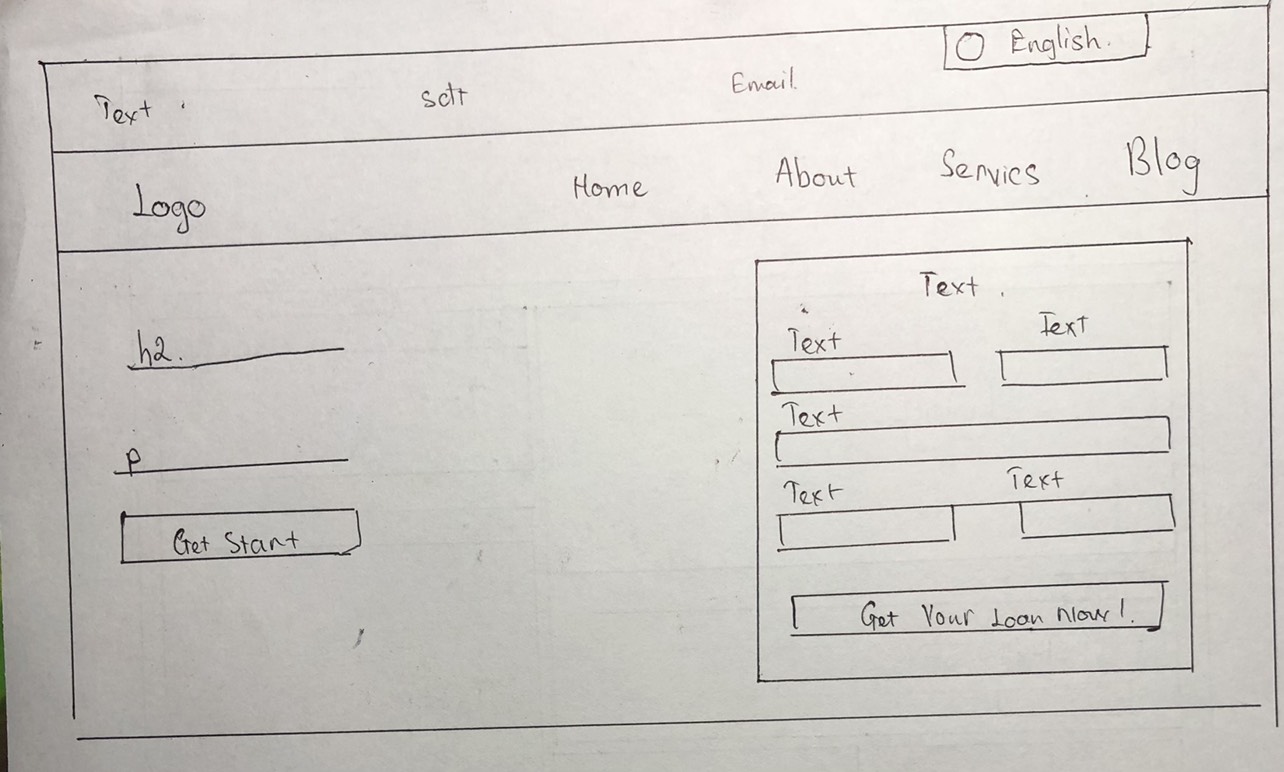 Text sctt Email English.
Logo Home About Servics Blog
h2.
p
Get Start
Text
Text Text
Text
Text Text
Get Your Loan Now!